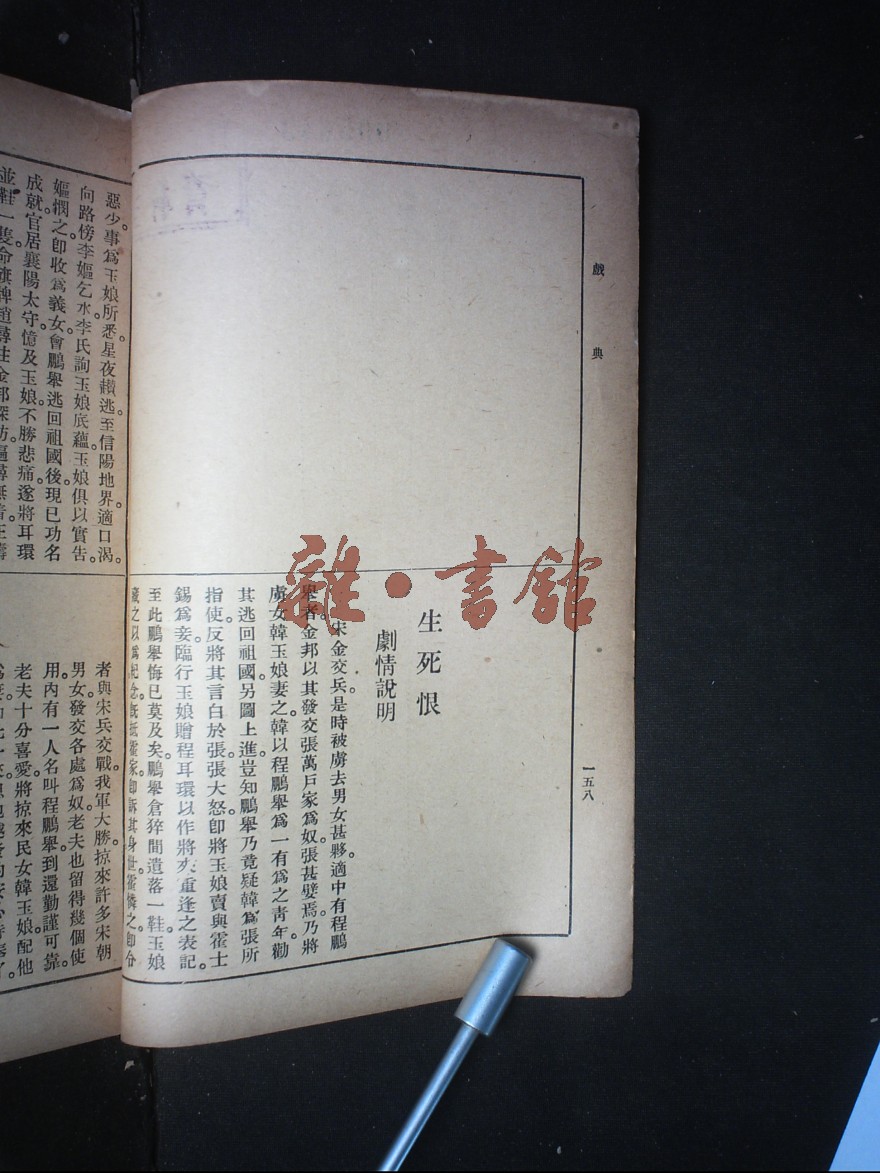 戲典
一五八
生死恨
劇情說明
宋金交兵。是時被虜去男女甚夥。適中有程鵬
舉者。金邦以其發交張萬戶家爲奴。張甚嬖焉。乃將
虜女韓玉娘妻之。韓以程鵬舉爲一有爲之青年。勸
其逃回祖國。另圖上進。豈知鵬舉乃竟疑韓爲張所
指使。反將其言白於張。張大怒。卽將玉娘賣與霍士
錫爲妾。臨行玉娘贈程耳環。以作將來重逢之表記。
至此鵬舉悔已莫及矣。鵬舉倉猝間遺落一鞋。玉娘
藏之。以爲紀念。旣抵霍家。卽訴其身世。霍憐之。卽令
惡少事爲玉娘所悉。星夜逃至信陽地界。適口渴。
向路傍李嫗乞水。李氏詢玉娘底蘊。玉娘俱以實吿。
嫗憫之。卽收爲義女。會鵬舉逃回祖國後。現已功名
成就。官居襄陽太守。憶及玉娘。不勝悲痛。遂將耳環
並鞋一隻。命旗牌趙尋往金邦探訪。
者與宋兵交戰。我軍大勝。掠來許多宋朝
男女。發交各處爲奴。老夫也留得幾個使
用。內有一人。名叫程鵬舉。到還勤謹可靠。
老夫十分喜愛。將掠來民女韓玉娘。配他
雜·書館